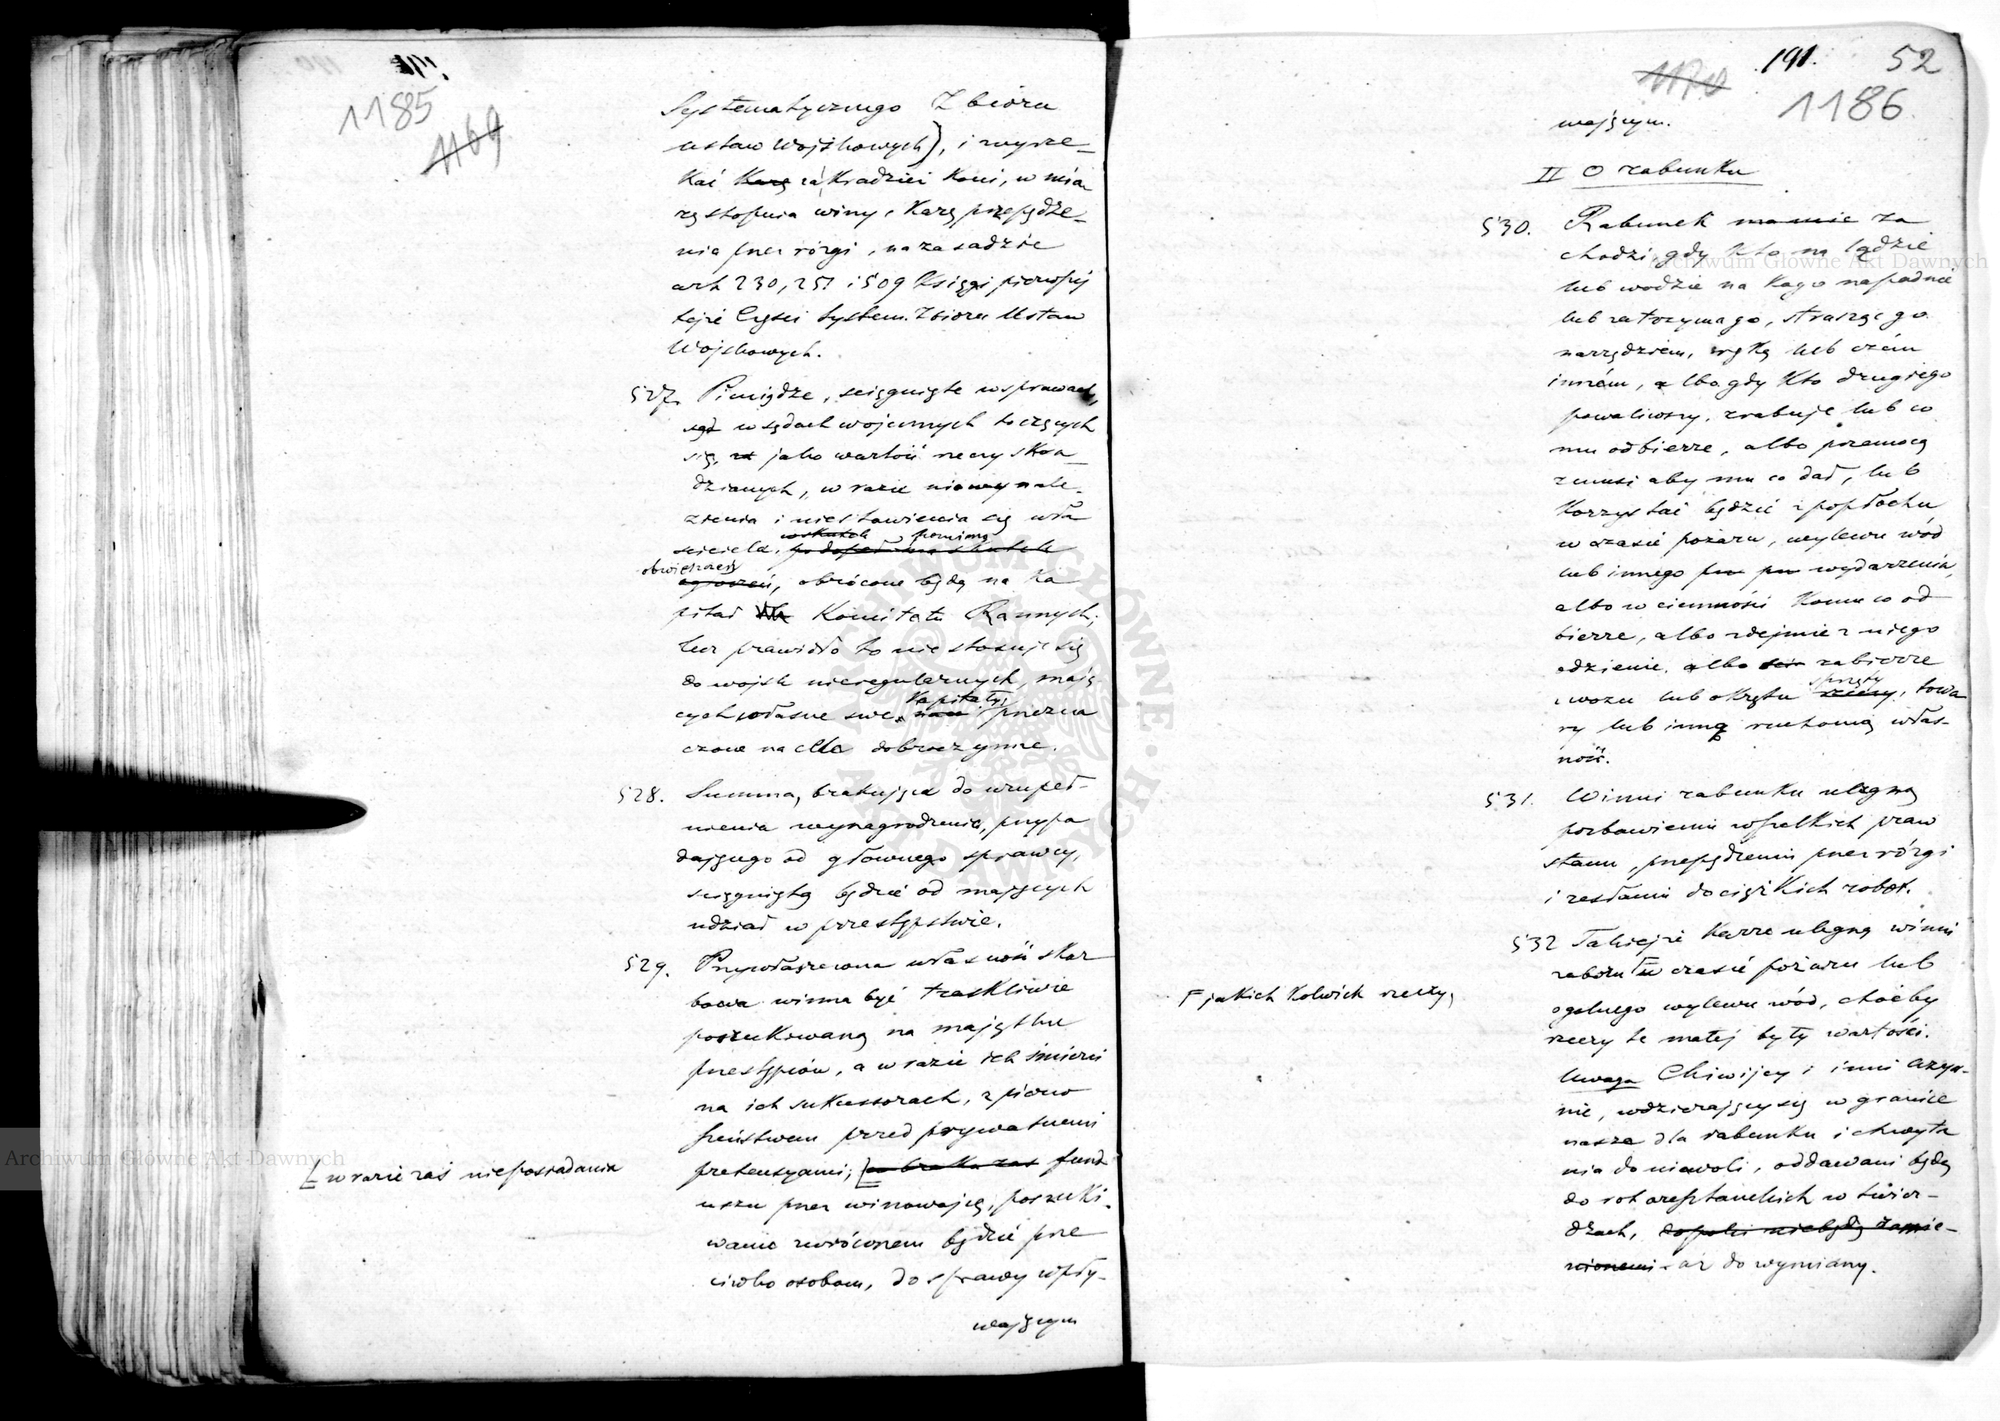 191.
1185
1169
Systematycznego Zbioru
ustaw Wojskowych), i wyrze-
kać karę za kradzież koni, w mia
rę stopnia winy, karę przepędze-
nia przez rózgi, na zasadzie
art 230, 251 i 509 Księgi pierwszej
tejże Części System. Zbioru Ustaw
Wojskowych.
527. Pieniądze, ściągnięte w sprawach,
sąd w sądach wojennych toczących
się, jako wartość rzeczy skra-
dzionych, w razie niewynale-
zienia i niestawienia się wła
ściciela, wskutek pomimo
obwieszczeń
ogłoszeń, obrócone będą na ka
pitał Komitetu Rannych;
lecz prawidło to nie stosuje się
do wojsk nieregularnych, mają
cych własne swe kapitały, przezna
czone na cele dobroczynne.
528. Summa, brakująca do uzupeł-
nienia wynagrodzenia, przypa
dającego od głównego sprawcy,
ściągniętą będzie od mających
udział w przestępstwie.
529. Przywłaszczona własność skar
bowa winna być troskliwie
poszukiwaną na majątku
przestępców, a w razie ich śmierci
na ich sukcessorach, z pierw
szeństwem przed prywatnemi
pretensyami; w braku zaś fund
w razie zaś nieposiadania
uszu przez winowajcę, poszuki-
wanie zwróconem będzie prze
ciwko osobom, do sprawy wpły-
wającym
191. 52
1170
1186
wającym.
II O rabunku
530. Rabunek za
chodzi, gdy kto na lądzie
lub wodzie na kogo napadnie
lub zatrzyma go, strasząc go
narzędziem, ręką lub czém
inném, albo gdy kto drugiego
powaliwszy, zrabuje lub co
mu odbierze, albo przemocą
zmusi aby mu co dał, lub
korzystać będzie z popłochu
w czasie pożaru, wylewu wód
lub innego wydarzenia,
albo w ciemności komu co od
bierze, albo zdejmie z niego
odzienie, albo zabierze
z wozu lub okrętu sprzęty rzeczy, towa
ry lub inną ruchomą włas-
ność.
531. Winni rabunku ulegną
pozbawieniu wszelkich praw
stanu, przepędzeniu przez rózgi
i zesłaniu do ciężkich robót.
532 Takiejże karze ulegną winni
zaboru w czasie pożaru lub
jakich kolwiek rzeczy,
ogólnego wylewu wód, choćby
rzeczy te małej były wartości.
Uwaga Chiwijcy i inni Azya-
ci, wdzierający się w granice
nasze dla rabunku i chwyta
nia do niewoli, oddawani będą
do rot aresztanckich w twier-
dzach, dopóki nie będą zamie-
nionemi aż do wymiany.
Archiwum Główne Akt Dawnych
Archiwum Główne Akt Dawnych